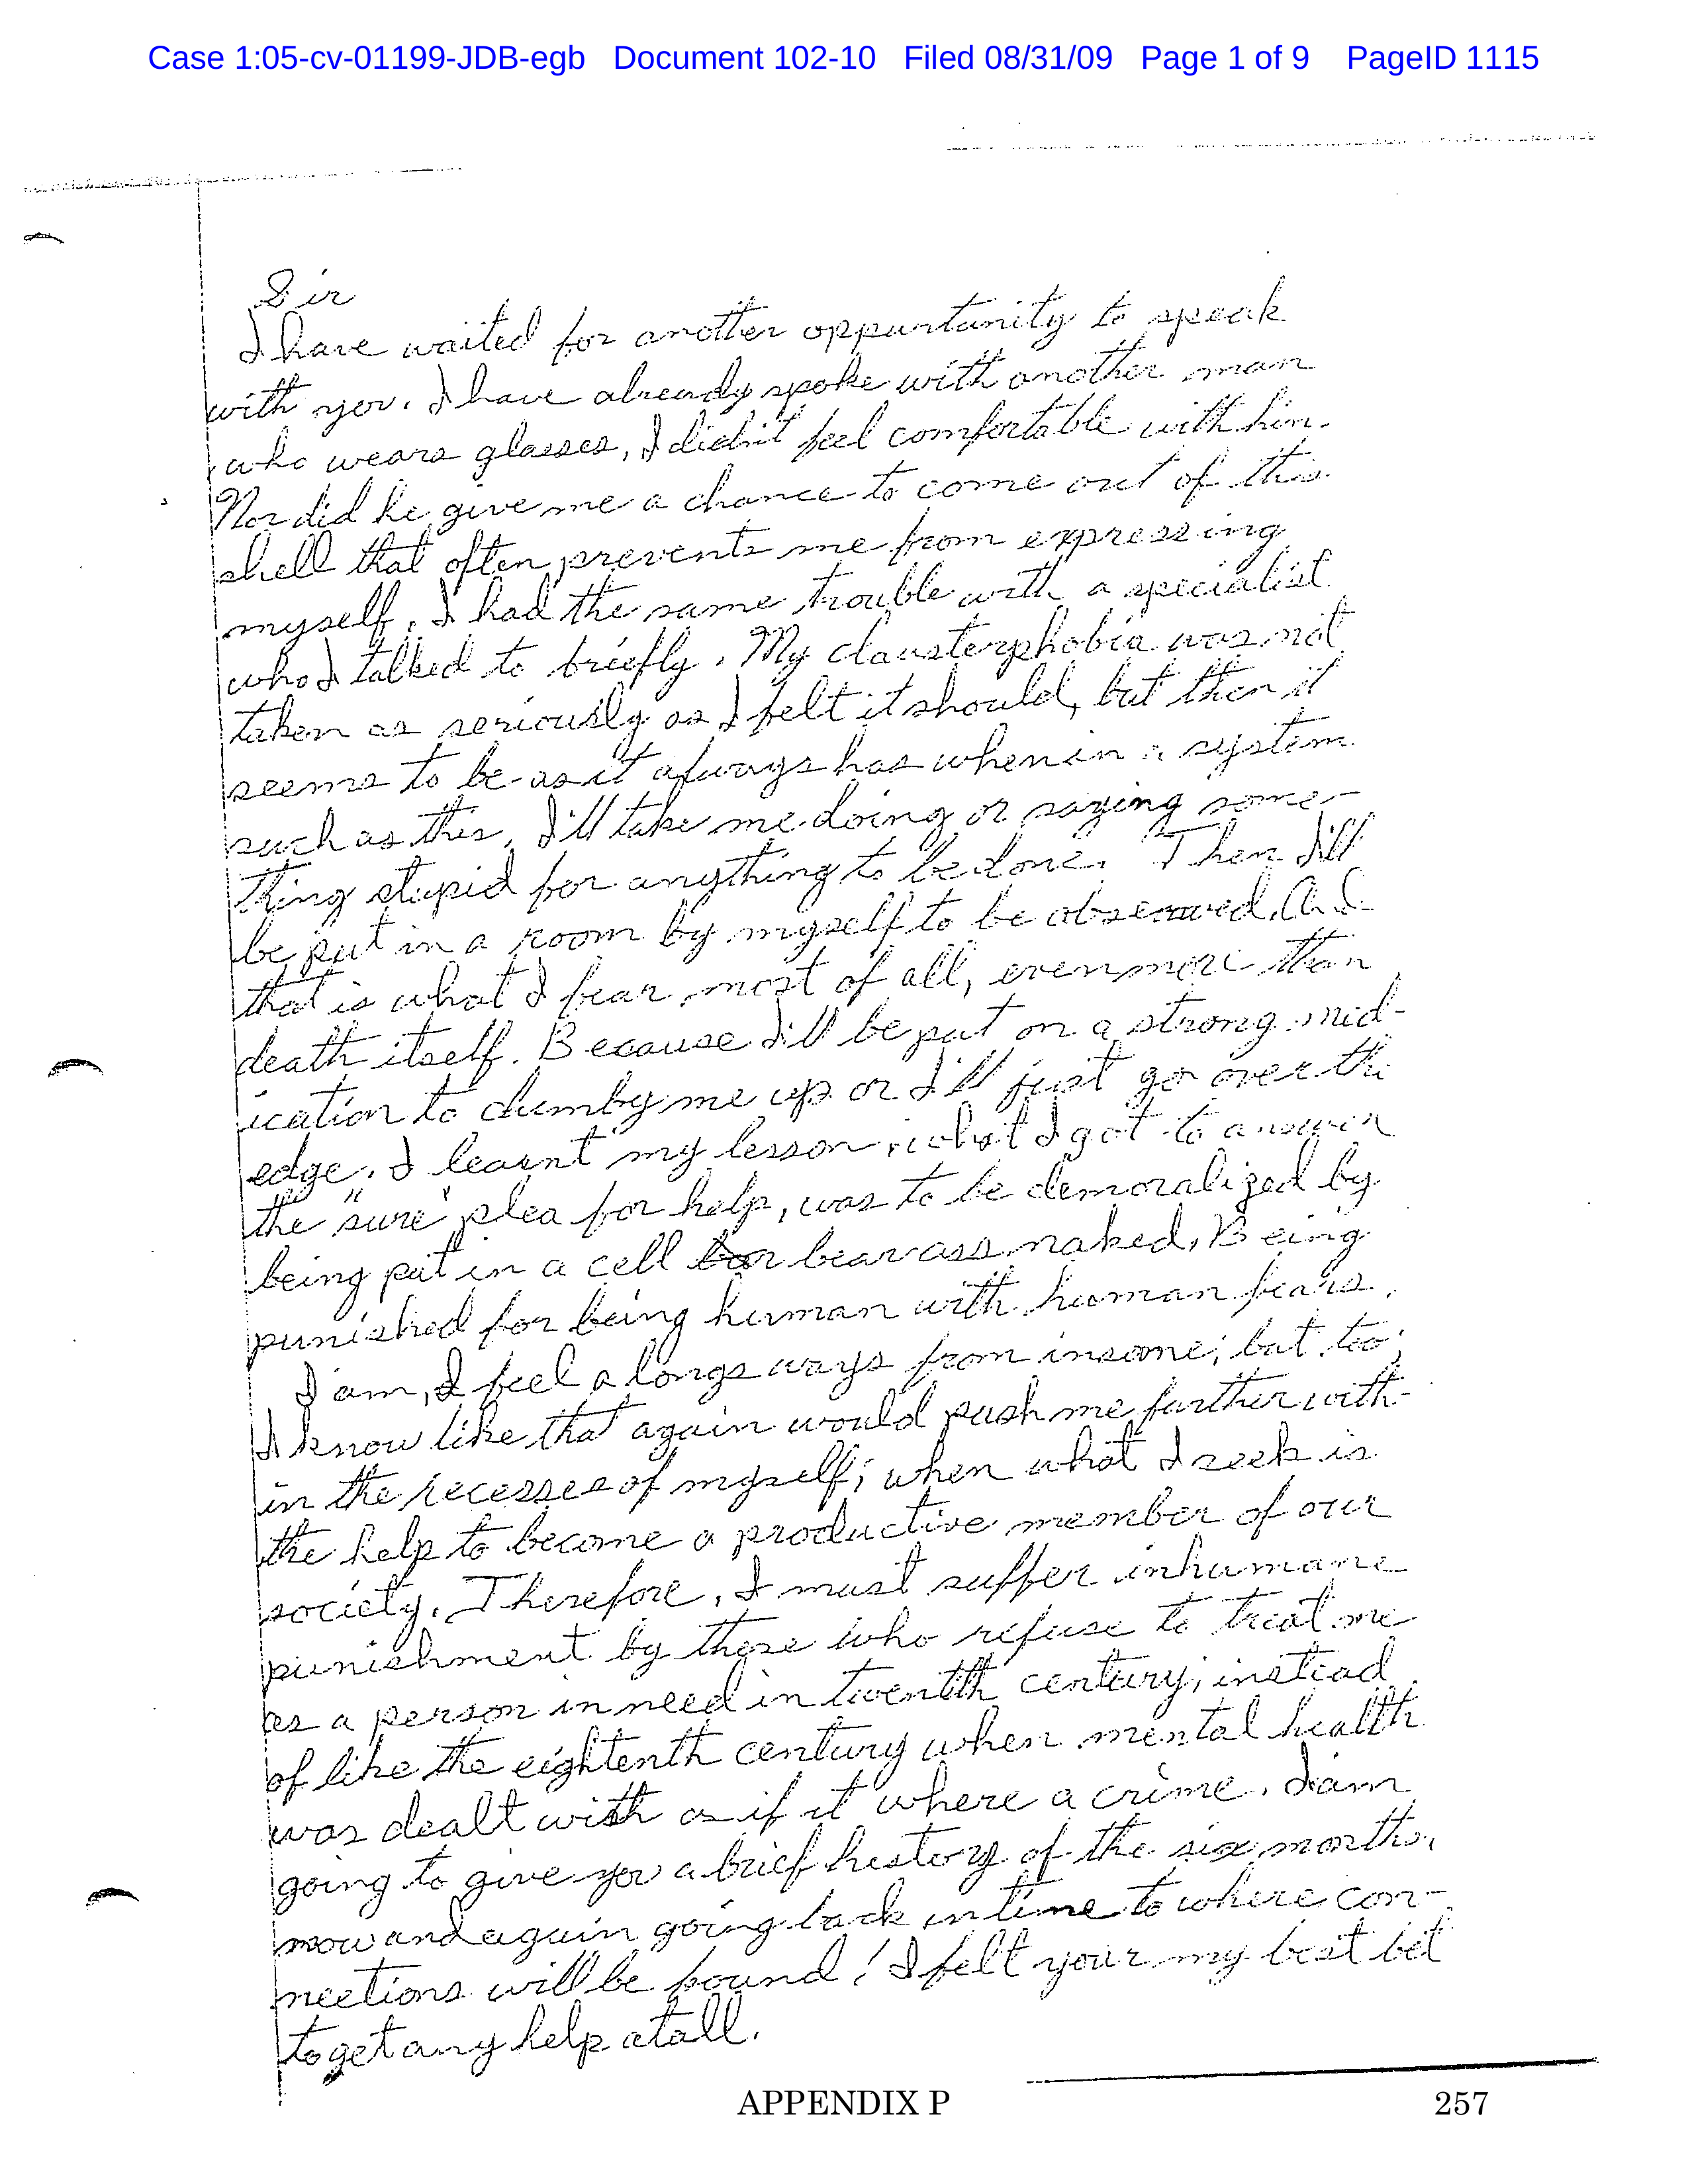 Case 1:05-cv-01199-JDB-egb Document 102-10 Filed 08/31/09 Page 1 of 9 PageID 1115
Sir
I have waited for another oppurtunity to speak
with you. I have already spoke with another man
who wears glasses, I didn't feel comfortable with him.
Nor did he give me a chance to come out of this
shell that often prevents me from expressing
myself. I had the same trouble with a specialist
who I talked to briefly. My clausterphobia was not
taken as seriously as I felt it should, but then it
seems to be as it always has when in a system
such as this, I'll take me doing or saying some-
thing stupid for anything to be done. Then I'll
be put in a room by myself to be observed. And
that is what I fear most of all, even more than
death itself. Because I'll be put on a strong med-
ication to dumby me up or I'll just go over the
edge. I learnt my lesson, what I got to answer
the "sure" plea for help, was to be demoralized by
being put in a cell bear ass naked, Being
punished for being human with human fears.
I am, I feel a longs ways from insane; but too;
I know like that again would push me further with-
in the recesses of myself; when what I seek is
the help to become a productive member of our
society. Therefore, I must suffer inhumane
punishment by those who refuse to treat me
as a person in need in twentith century; instead
of like the eightenth century when mental health
was dealt with as if it where a crime. I am
going to give you a brief history of the six months,
now and again going back in time to where con-
nections will be found! I felt your my best bet
to get any help at all.
APPENDIX P 257